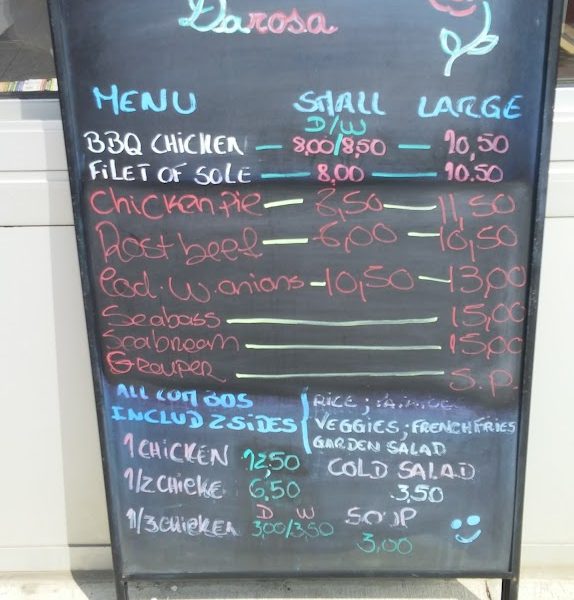 Darosa
MENU SMALL LARGE
D/W
BBQ CHICKEN — 8,00/8,50 — 10,50
FILET OF SOLE — 8,00 — 10.50
Chicken pie — 8,50 — 11,50
Rost beef — 6,00 — 10,50
Cod. W. onions - 10,50 - 13,00
Seabass — 15,00
Seabream — 15,00
Grouper — S.P.
ALL COMBOS RICE;
INCLUD 2 SIDES VEGGIES; FRENCH FRIES
GARDEN SALAD
1 CHICKEN 12,50 COLD SALAD
1/2 CHICKE 6,50 3,50
D W
1/3 CHICKEN 3,00/3,50 SOUP
3,00